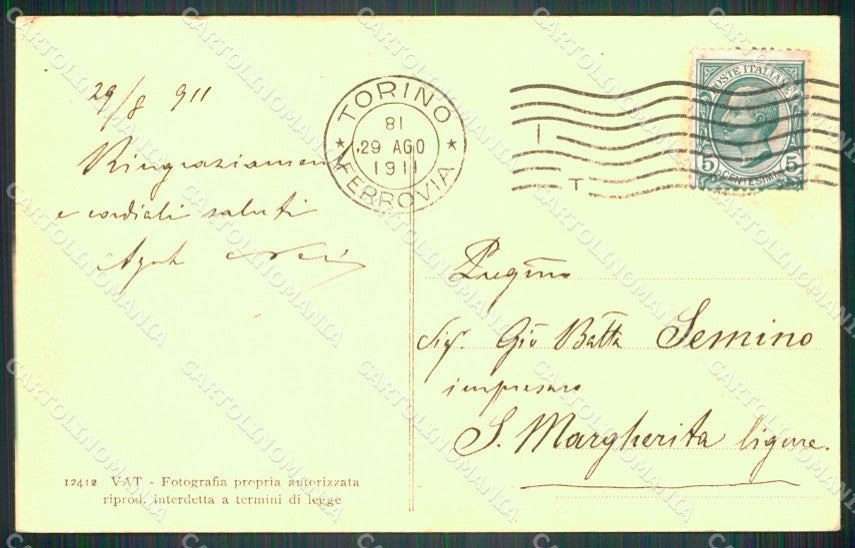 29/8 911
Ringraziamenti
e cordiali saluti
TORINO
81
29 AGO
1911
FERROVIA
I
T
POSTE ITALIANE
5 5
CENTESIMI
Sig. Gio Batta Semino
impresaro
S. Margherita ligure.
12412 VAT - Fotografia propria autorizzata
riprod. interdetta a termini di legge
CARTOLINOMANIA